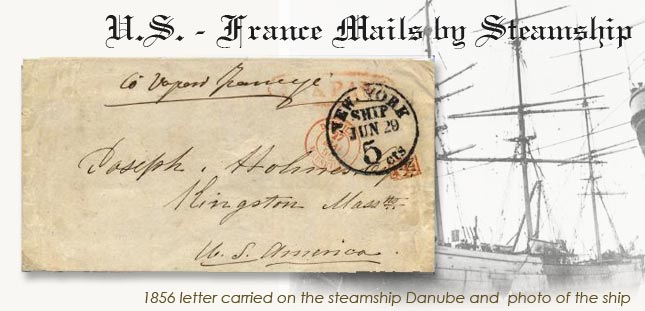 U.S. - France Mails by Steamship
NEW YORK
SHIP
JUN 29
5
cts
Joseph Holmes
Kingston Mass
U.S. America
1856 letter carried on the steamship Danube and photo of the ship